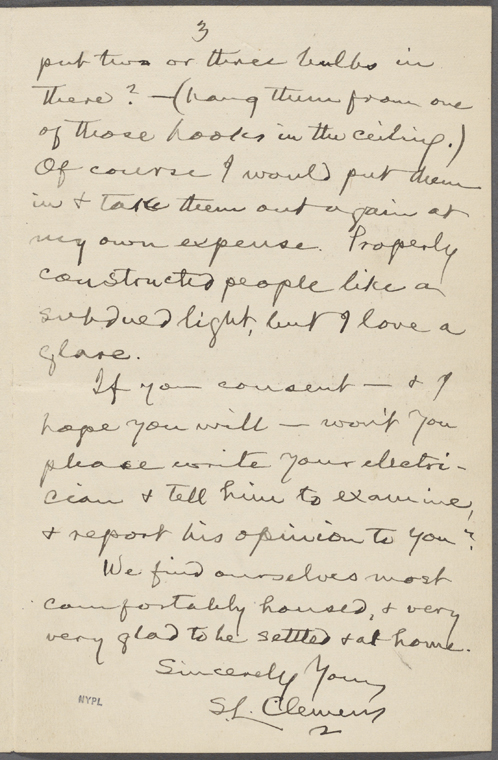 3
put two or three bulbs in
there? — (hang them from one
of those hooks in the ceiling.)
Of course I would put them
in & take them out again at
my own expense. Properly
constructed people like a
subdued light, but I love a
glare.
If you consent — & I
hope you will — won't you
please write your electri-
cian & tell him to examine,
& report his opinion to you?
We find ourselves most
comfortably housed, & very
very glad to be settled & at home.
Sincerely Yours
SL. Clemens
NYPL